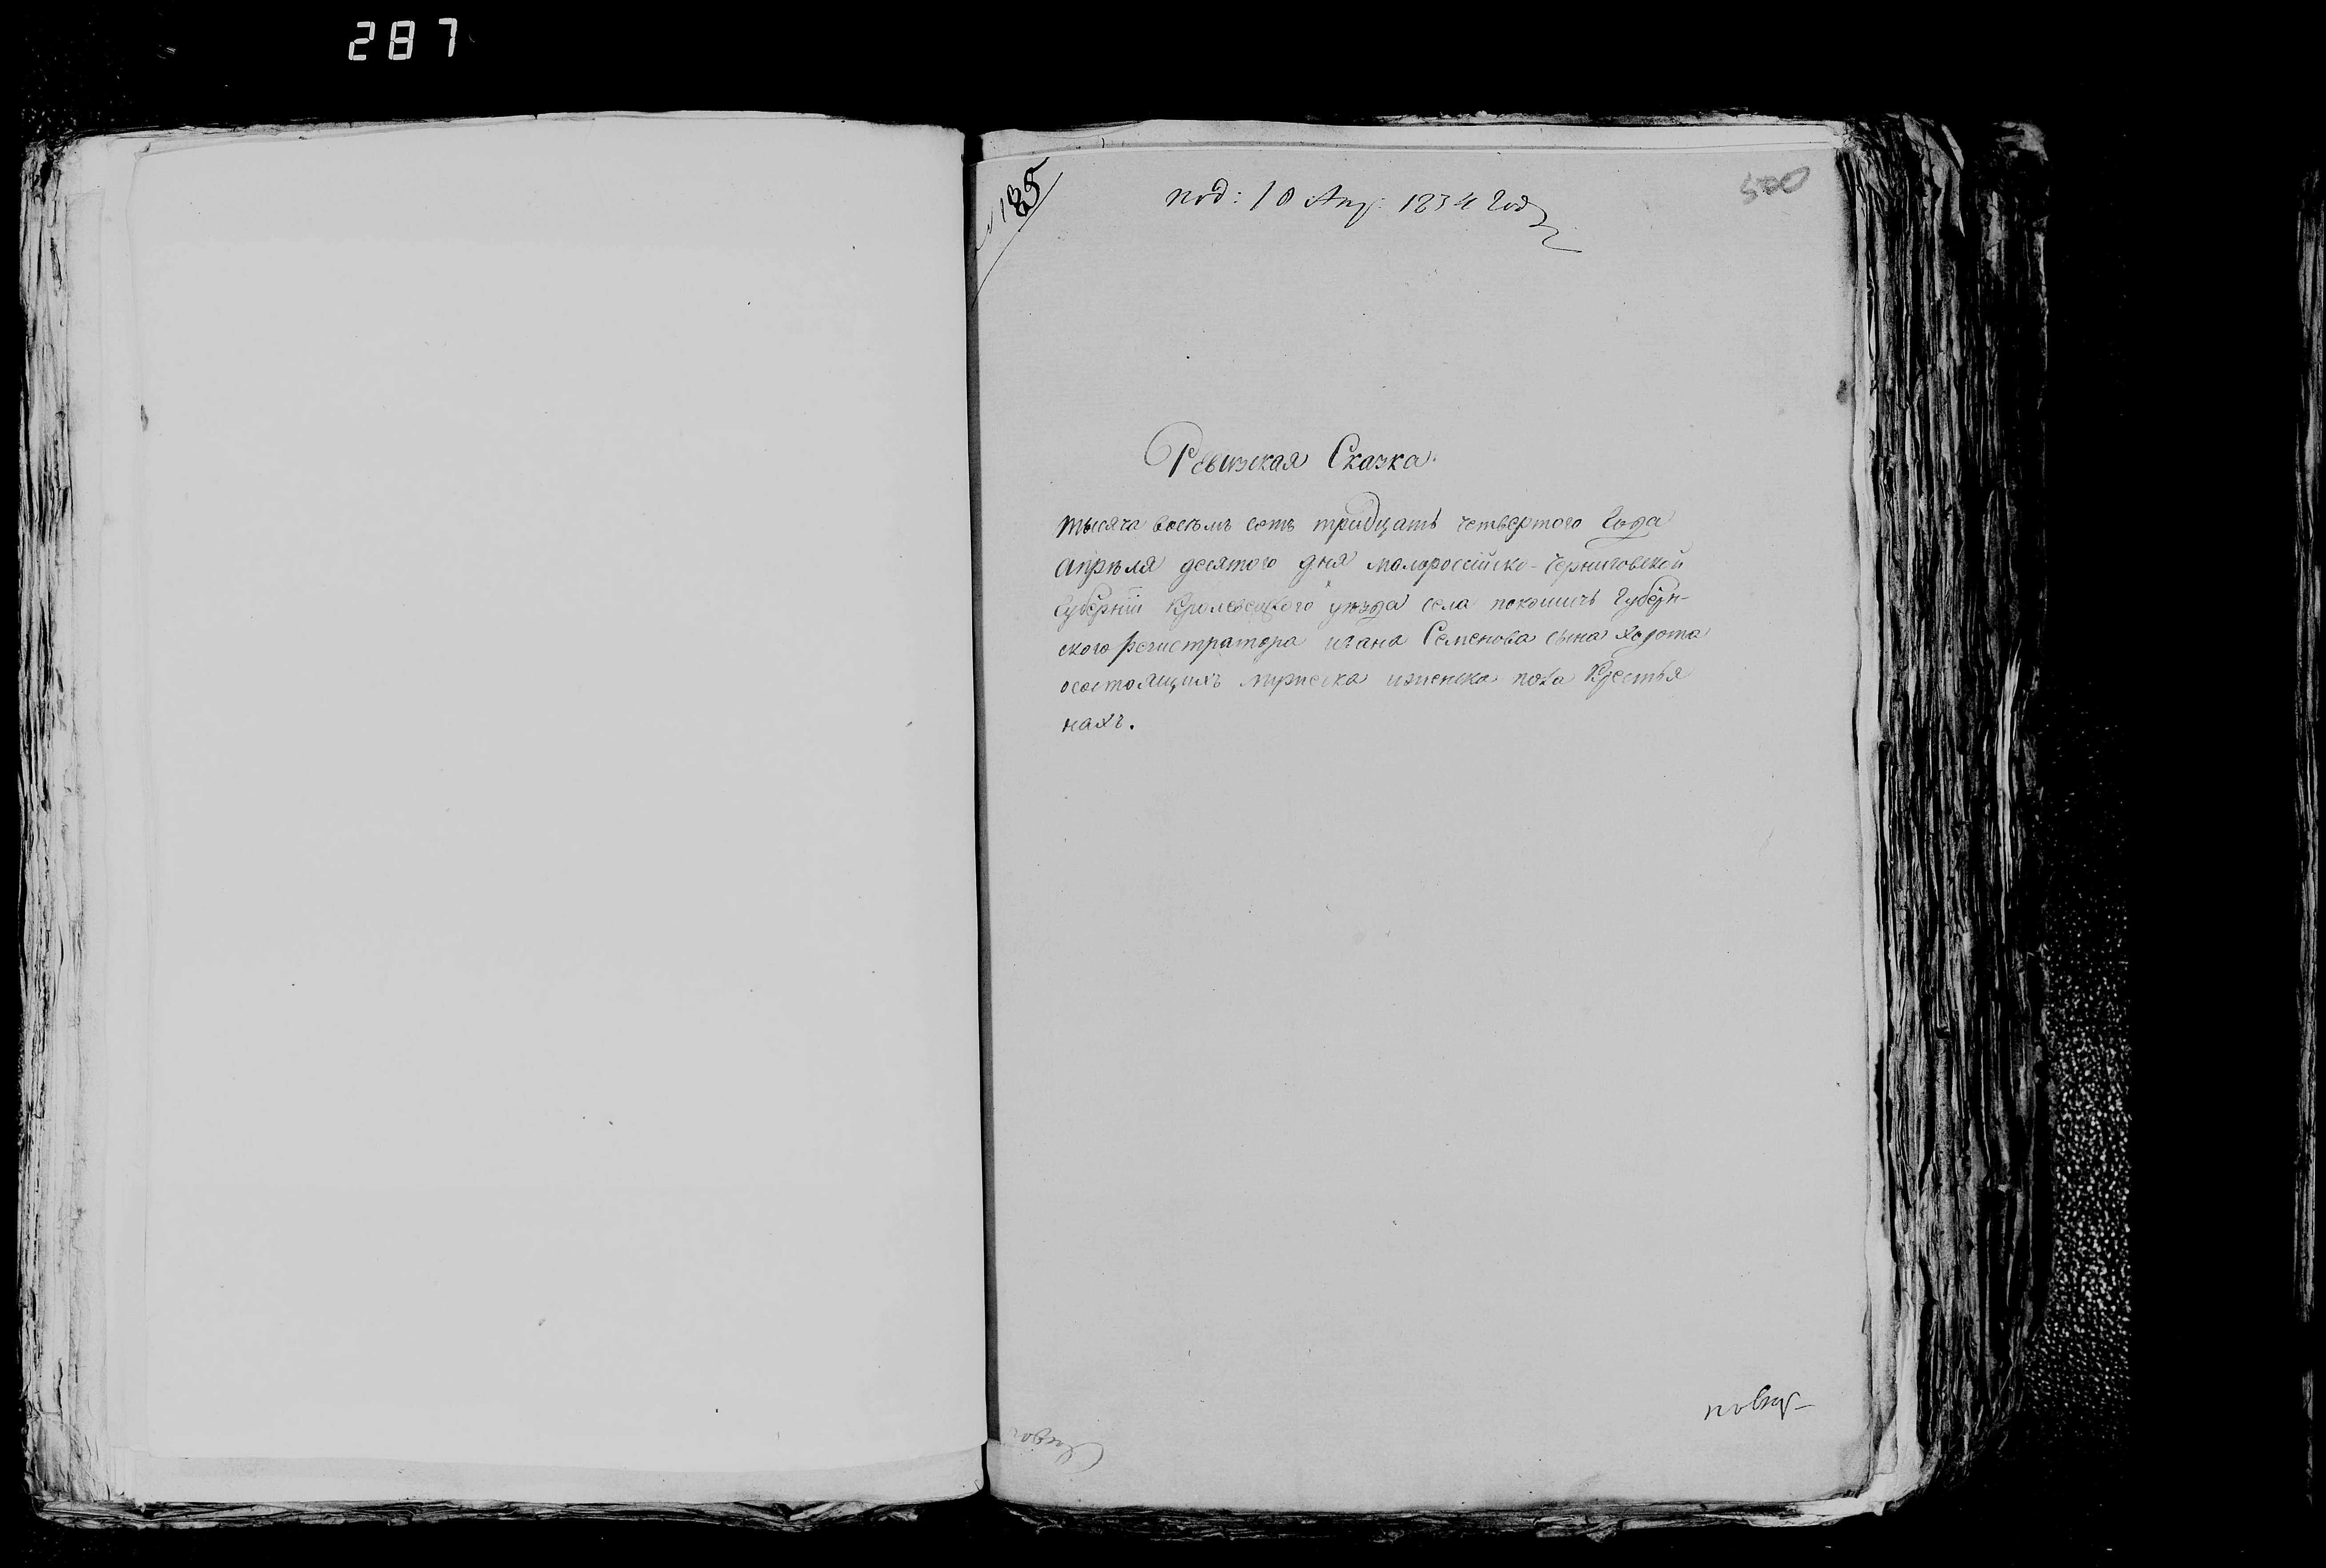 287
185
500
под: 10 Апр: 1834 года
Ревизская Сказка.
тысяча восемь сотъ тридцать четвертого Года
апреля десятого дня малороссійско-Черниговской
Губерніи Кролевецкого уезда села покошичъ Губерн-
ского регистратора ивана Семенова сына Хорота
осостоящихъ мужеска иженска пола Крестья
нахъ.